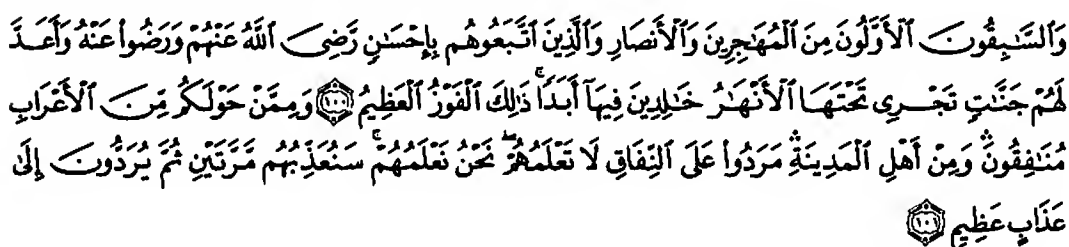 وَٱلسَّٰبِقُونَ ٱلْأَوَّلُونَ مِنَ ٱلْمُهَٰجِرِينَ وَٱلْأَنصَارِ وَٱلَّذِينَ ٱتَّبَعُوهُم بِإِحْسَٰنٍ رَّضِىَ ٱللَّهُ عَنْهُمْ وَرَضُوا۟ عَنْهُ وَأَعَدَّ
لَهُمْ جَنَّٰتٍ تَجْرِى تَحْتَهَا ٱلْأَنْهَٰرُ خَٰلِدِينَ فِيهَآ أَبَدًا ۚ ذَٰلِكَ ٱلْفَوْزُ ٱلْعَظِيمُ ۝١٠٠ وَمِمَّنْ حَوْلَكُم مِّنَ ٱلْأَعْرَابِ
مُنَٰفِقُونَ ۖ وَمِنْ أَهْلِ ٱلْمَدِينَةِ ۖ مَرَدُوا۟ عَلَى ٱلنِّفَاقِ لَا تَعْلَمُهُمْ ۖ نَحْنُ نَعْلَمُهُمْ ۚ سَنُعَذِّبُهُم مَّرَّتَيْنِ ثُمَّ يُرَدُّونَ إِلَىٰ
عَذَابٍ عَظِيمٍ ۝١٠١